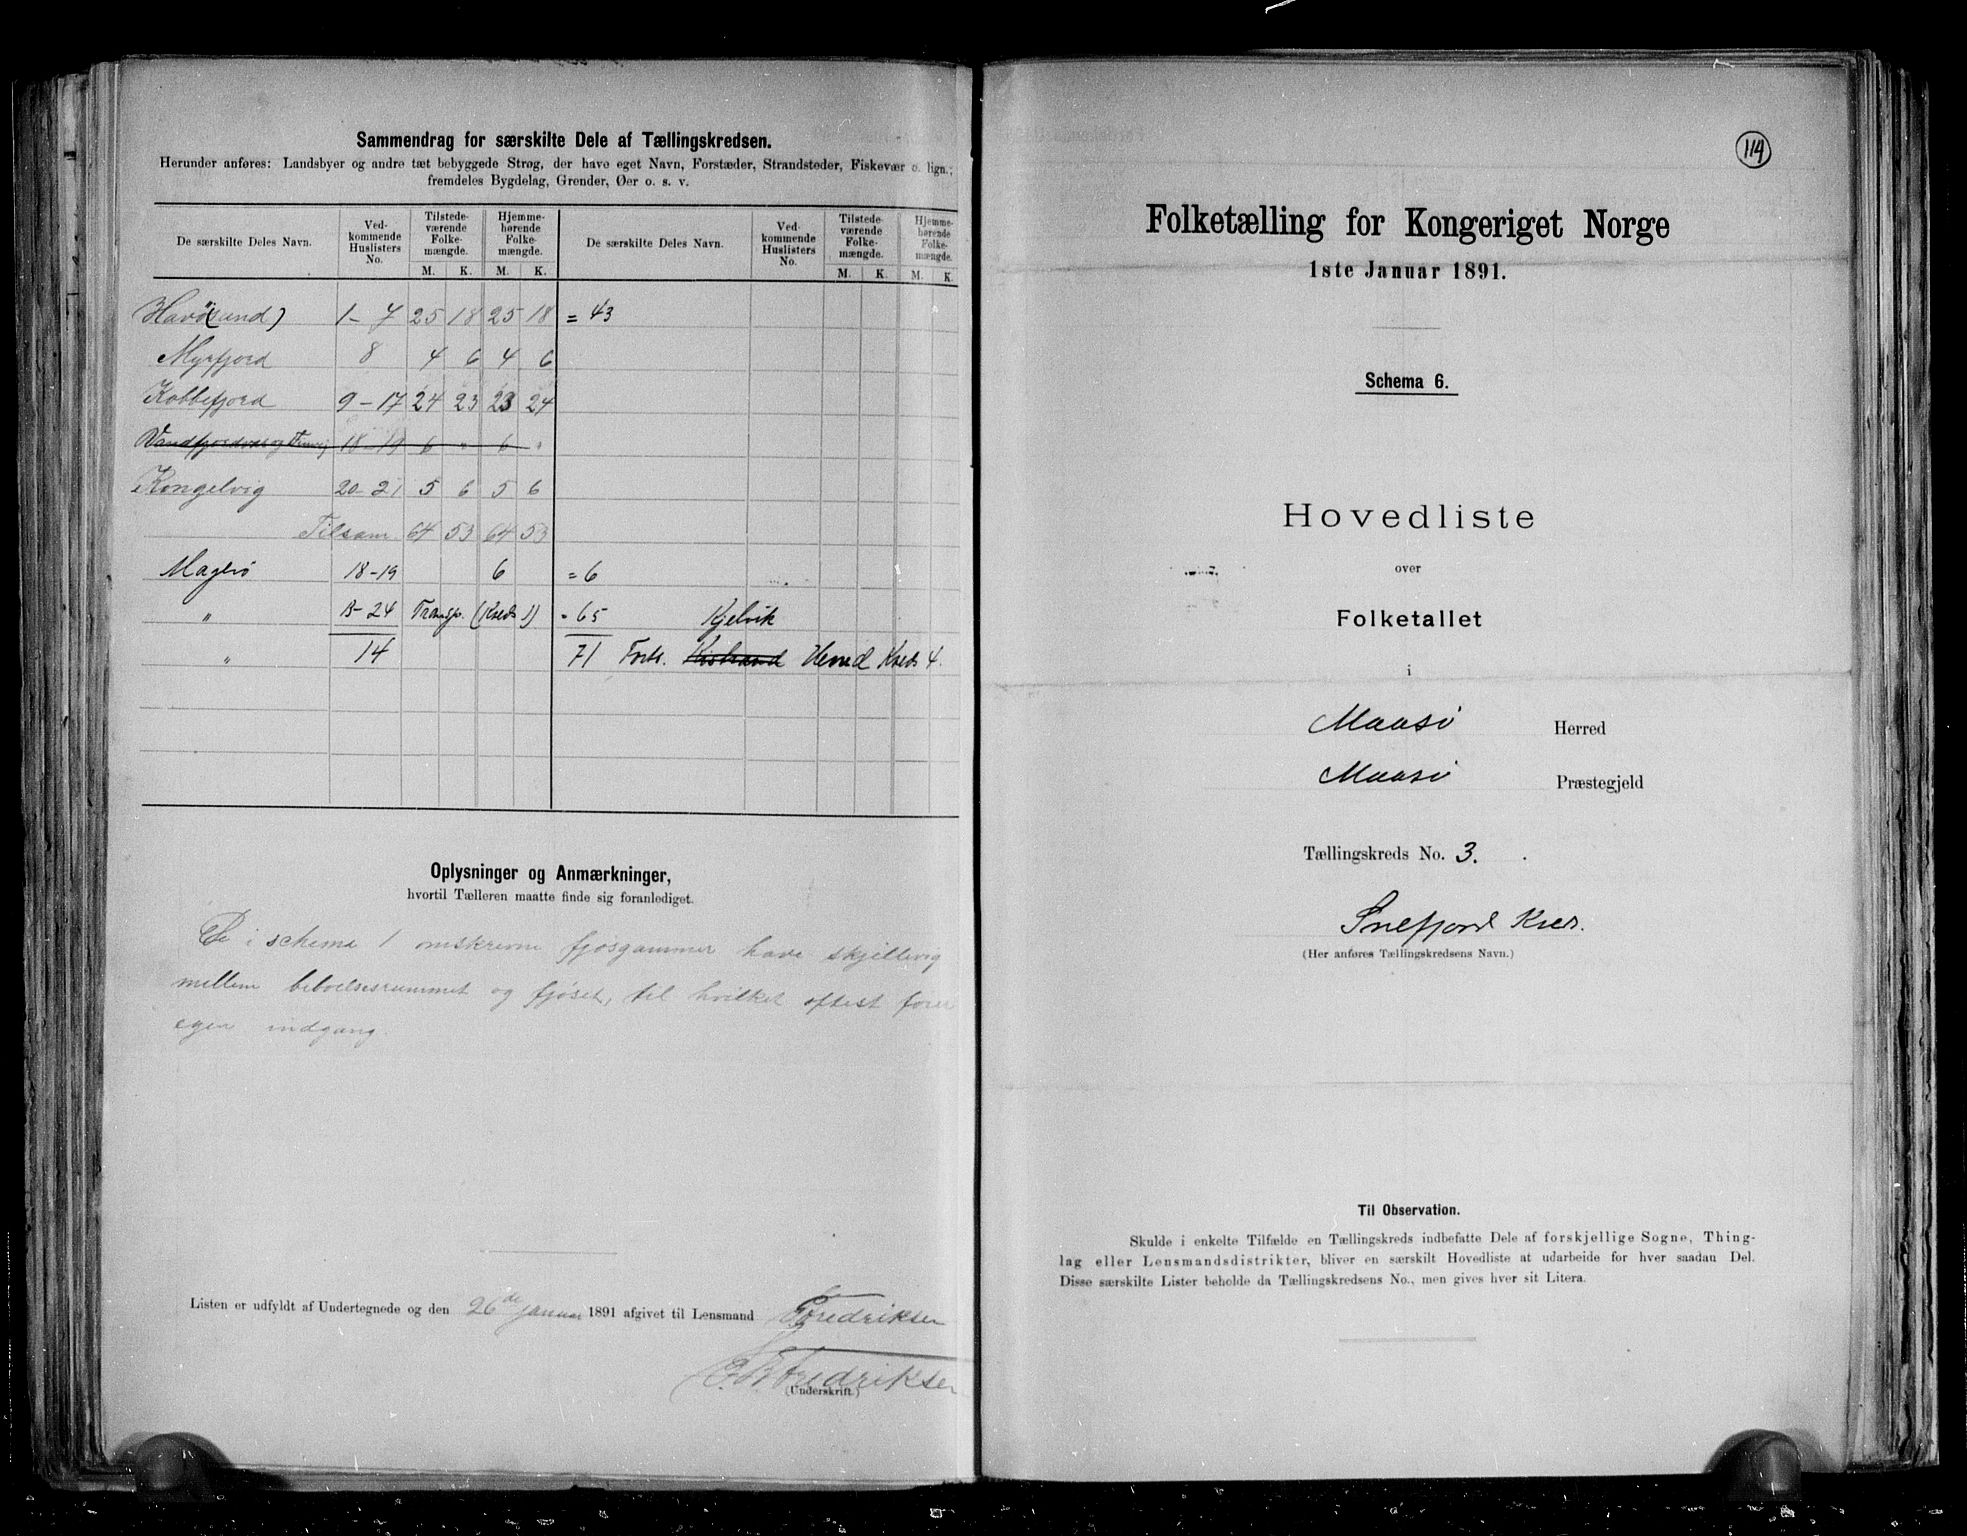 Sammendrag for særskilte Dele af Tællingskredsen.
Herunder anføres: Landsbyer og andre tæt bebyggede Strøg, der have eget Navn, Forstæder, Strandsteder, Fiskevær o. lign.;
fremdeles Bygdelag, Grender, Øer o. s. v.
De særskilte Deles Navn. Ved-kommende Huslisters No. Tilstede-værende Folke-mængde. Hjemme-hørende Folke-mængde. De særskilte Deles Navn. Ved-kommende Huslisters No. Tilstede-værende Folke-mængde. Hjemme-hørende Folke-mængde.
M. K. M. K. M. K. M. K.
Havö(sund) 1-7 25 18 25 18 = 43
Myrfjord 8 4 6 4 6
Kobbefjord 9-17 24 23 23 24
18-19 6 " 6 "
Kongelvig 20-21 5 6 5 6
Tilsam. 64 53 64 53
Magerø 18-19 6 = 6
" 13-24 Transp. (Kreds 1) = 65 Kjelvik
" 14 71 Forts. Kistrand Herred Kreds 4.
Oplysninger og Anmærkninger,
hvortil Tælleren maatte finde sig foranlediget.
De i schema 1 omskrevne fjøsgammer have skjillevig
mellem beboelsesrummet og fjøset, til hvilket oftest fører
egen indgang.
Listen er udfyldt af Undertegnede og den 26de januar 1891 afgivet til Lensmand Fredriksen
Fredriksen
(Underskrift.)
114
Folketælling for Kongeriget Norge
1ste Januar 1891.
Schema 6.
Hovedliste
over
Folketallet
i
Maasø Herred
Maasø Præstegjeld
Tællingskreds No. 3.
Snefjord Kreds.
(Her anføres Tællingskredsens Navn.)
Til Observation.
Skulde i enkelte Tilfælde en Tællingskreds indbefatte Dele af forskjellige Sogne, Thing-
lag eller Lensmandsdistrikter, bliver en særskilt Hovedliste at udarbeide for hver saadan Del.
Disse særskilte Lister beholde da Tællingskredsens No., men gives hver sit Litera.